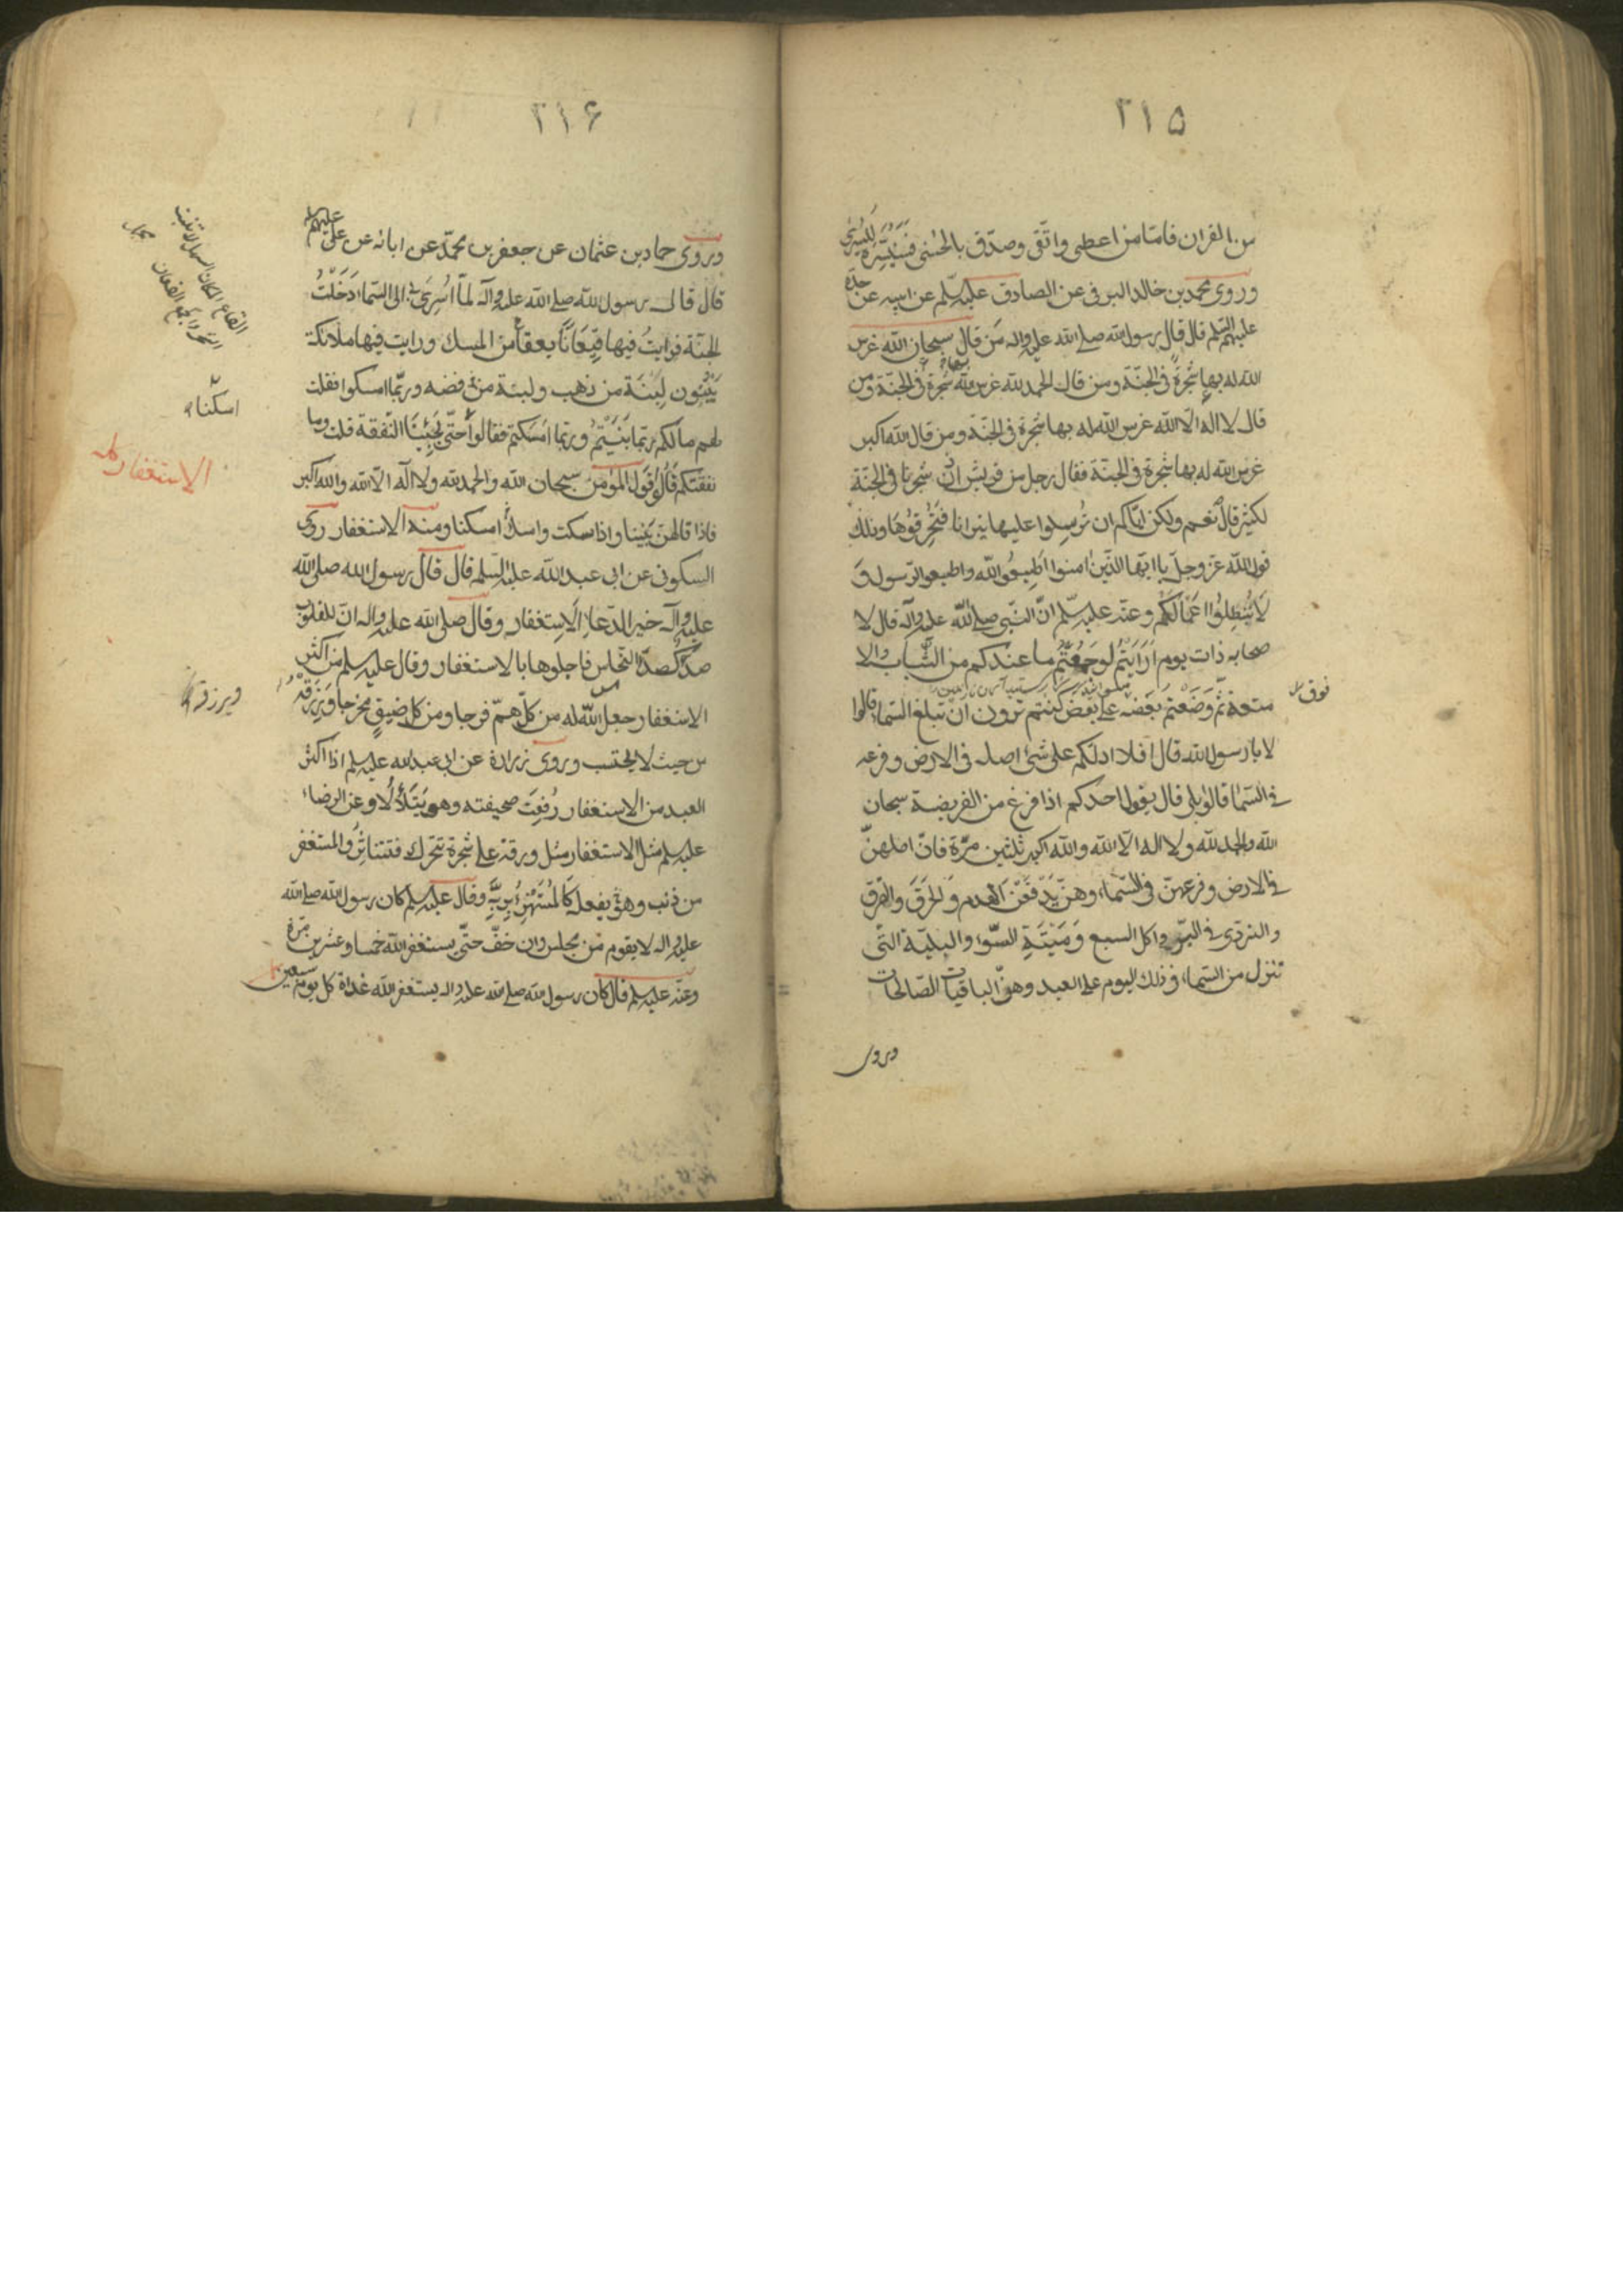 ۲۱۵
من القران فامّا من اعطى واتّقى وصدّق بالحسنى فسنيسّره لليسرى
وروى محمد بن خالد البرقى عن الصادق عليه السّلم عن ابيه عن جدّه
عليهم السّلم قال قال رسول الله صلى الله عليه واله مَن قال سبحان الله غرس
الله له بها شجرة فى الجنّة ومن قال الحمد لله غرس الله له بها شجرة فى الجنّة ومن
قال لا اله الّا الله غرس الله له بها شجرة فى الجنّة ومن قال الله اكبر
غرس الله له بها شجرة فى الجنّة فقال رجل من قريش انّ شجرنا فى الجنّة
لكثير قال نعم ولكن ايّاكم ان تُرسِلوا عليها نيرانا فتُحرِقوُها وذلك
قول الله عزّ وجلّ يا ايّها الذّين امنوا اَطِيعُوا الله واطيعوا الرّسول وَ
لَا تُبْطِلُوا اَعْمَالَكُم وعنه عليه السّلم انّ النّبى صلى الله عليه وآله قال لا
صحابه ذات يوم اَرَاَيْتُم لو جَمَعْتُم ما عندكم من الثّياب والا
متعة ثمّ وَضَعْتم بَعضَه على بَعض كنتم تَرون ان تبلغ السّماء قالوا
فوق
لا يا رسول الله قال افلا ادلّكم على شئ اصله فى الارض وفرعه
فى السّماء قالوا بلى قال يقول احدكم اذا فرغ من الفريضة سبحان
الله والحمد لله ولا اله الّا الله والله اكبر ثلثين مرّة فانّ اصلهنّ
فى الارض وفرعهنّ فى السّماء وهنّ يَدفَعْنَ الهدم وَالحَرَقَ والغَرَق
والتردّى فى البئر واكل السبع وَمَيْتَةِ السّوء والبليّة التّى
تنزل من السّماء فى ذلك اليوم على العبد وهنّ الباقيات الصّالحات
وروى
۲۱۶
وروى حماد بن عثمان عن جعفر بن محمّد عن ابائه عن على عليهم
قال قال رسول الله صلى الله عليه وآله لمّا اُسْرِىَ بى الى السّماء دَخَلْتُ
الجنّة فرايتُ فيها قِيْعَانًا يققًا من المسك ورايت فيها ملائكة
يَبْنُون لَبِنَة من ذهب ولبنة من فضه وربّما امسكوا فقلت
لهم ما لكم ربّما بَنَيْتُم وربّما اَمْسَكتم فقالوا حتّى تجِيئنا النّفقة قلت وما
نفقتكم قالوا قول المؤمن سبحان الله والحمد لله ولا اله الّا الله والله اكبر
فاذا قالهنّ بَنَيْنا واذا سكت وامسك امسكنا ومنه الاستغفار روى
السكونى عن ابى عبد الله عليه السّلم قال قال رسول الله صلى الله
عليه وآله خير الدّعاء الاستغفار وقال صلى الله عليه واله انّ للقلوب
صدَأً كصدَأ النّحاس فاجلوها بالاستغفار وقال عليه السلم من اكثر
الاستغفار جعل الله له من كلّ همّ فرجا ومن كلّ ضيقٍ مخرجا ويَرْزقْهُ
من حيث لا يحتسب وروى زرارة عن ابى عبد الله عليه السلم اذا اكثر
العبد من الاستغفار رُفِعَت صحيفته وهو يَتَلَألأ وعن الرضا
عليه السلم مثل الاستغفار مثل ورقة على شجرة تحّرك فتتناثر والمستغفر
من ذنب وهو يفعله كَالمُسْتَهْزِئِ بِرَبِّهِ وقال عليه السلم كان رسول الله صلى الله
عليه واله لا يقوم من مجلس وان خفّ حتّى يستغفر الله خمسا وعشرين مرّة
وعنه عليه السلم قال كان رسول الله صلى الله عليه واله يستغفر الله غداة كل يوم سبعين
القاع المكان السهل لا ينبت
الشجر والجمع القيعان
امسكنا
الاستغفار
ويرزقه